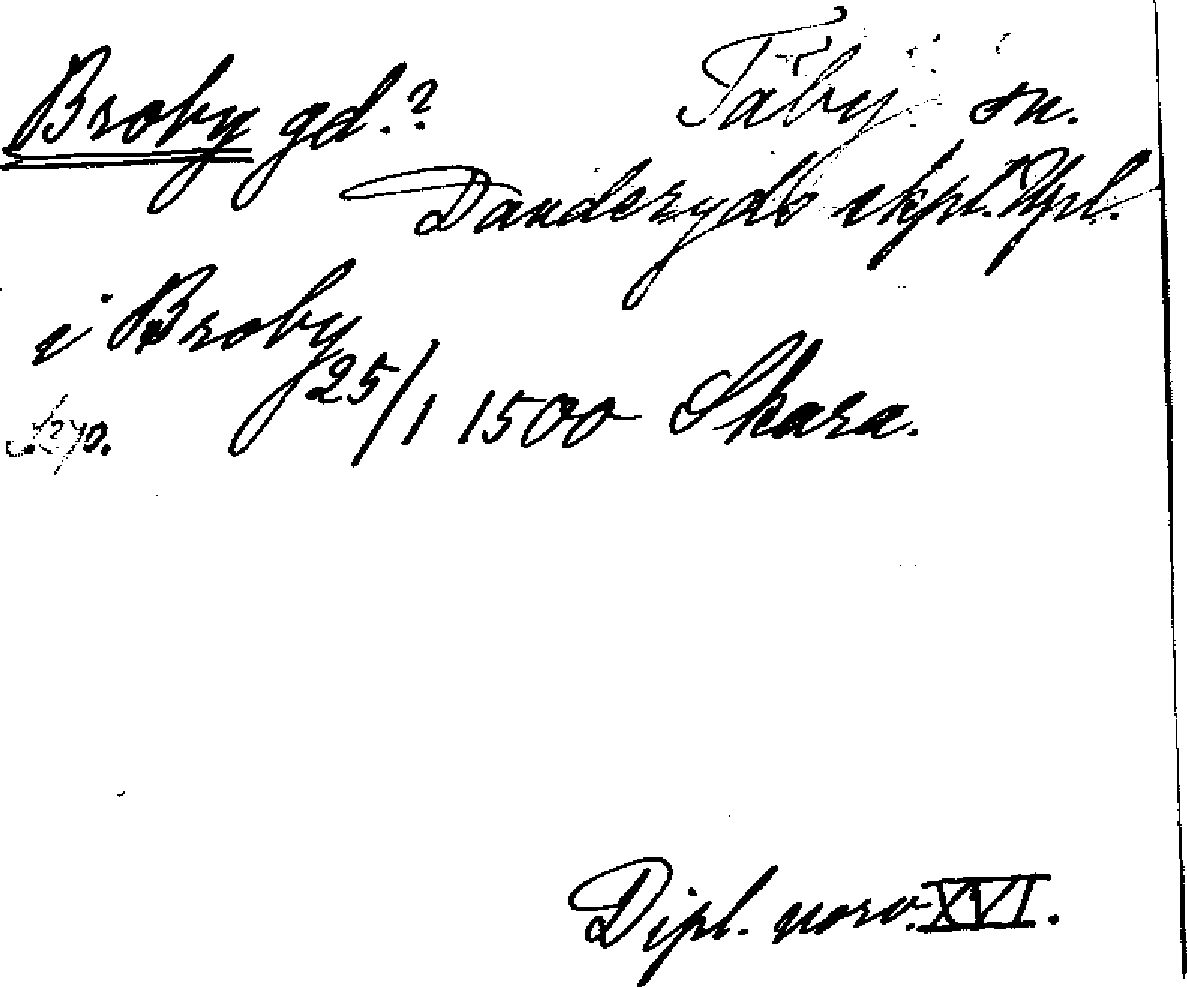 Broby gd.? Täby sn.
Danderyds skpl. Upl.
i Broby
25/1 1500 Skara.
Dipl. norv. XVI.